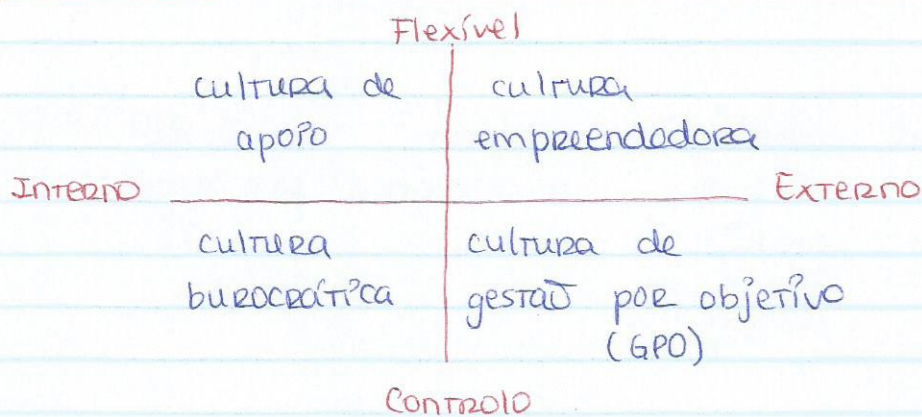 Flexível
cultura de
apoio
cultura
empreendedora
Interno
Externo
cultura
burocrática
cultura de
gestão por objetivo
(GPO)
Controlo